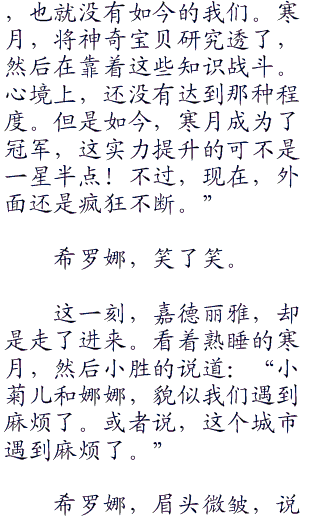 ，也就没有如今的我们。寒
月，将神奇宝贝研究透了，
然后在靠着这些知识战斗。
心境上，还没有达到那种程
度。但是如今，寒月成为了
冠军，这实力提升的可不是
一星半点！不过，现在，外
面还是疯狂不断。”
希罗娜，笑了笑。
这一刻，嘉德丽雅，却
是走了进来。看着熟睡的寒
月，然后小胜的说道：“小
菊儿和娜娜，貌似我们遇到
麻烦了。或者说，这个城市
遇到麻烦了。”
希罗娜，眉头微皱，说